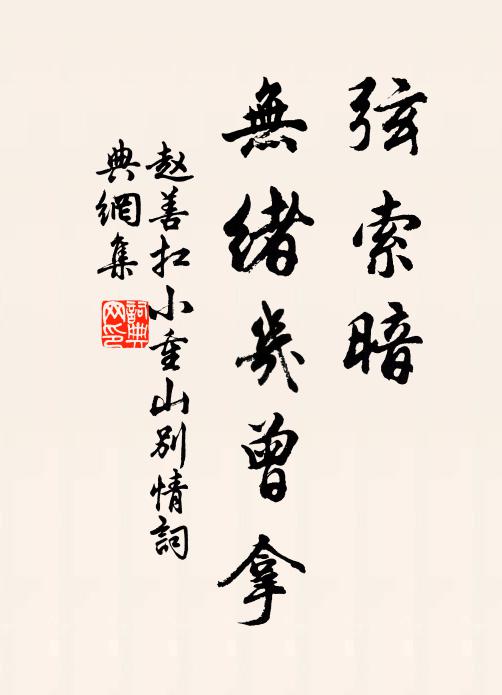 弦索暗
無緒幾曾拿
赵善扛小重山别情詞
典網集
詞典
网印